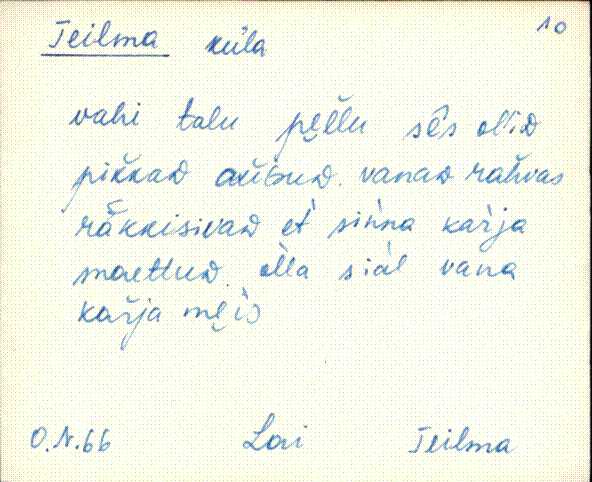 10
Teilma küla
vahi talu pęl̆lu sēs ol̀lid
pik̆kad aŭ̀bud. vanad rah̆vas
räk̆kisivad et̀ siǹna kaŕja
maettud. òlla siäl vana
kaŕja męìs
O.N.66 Lovi Teilma